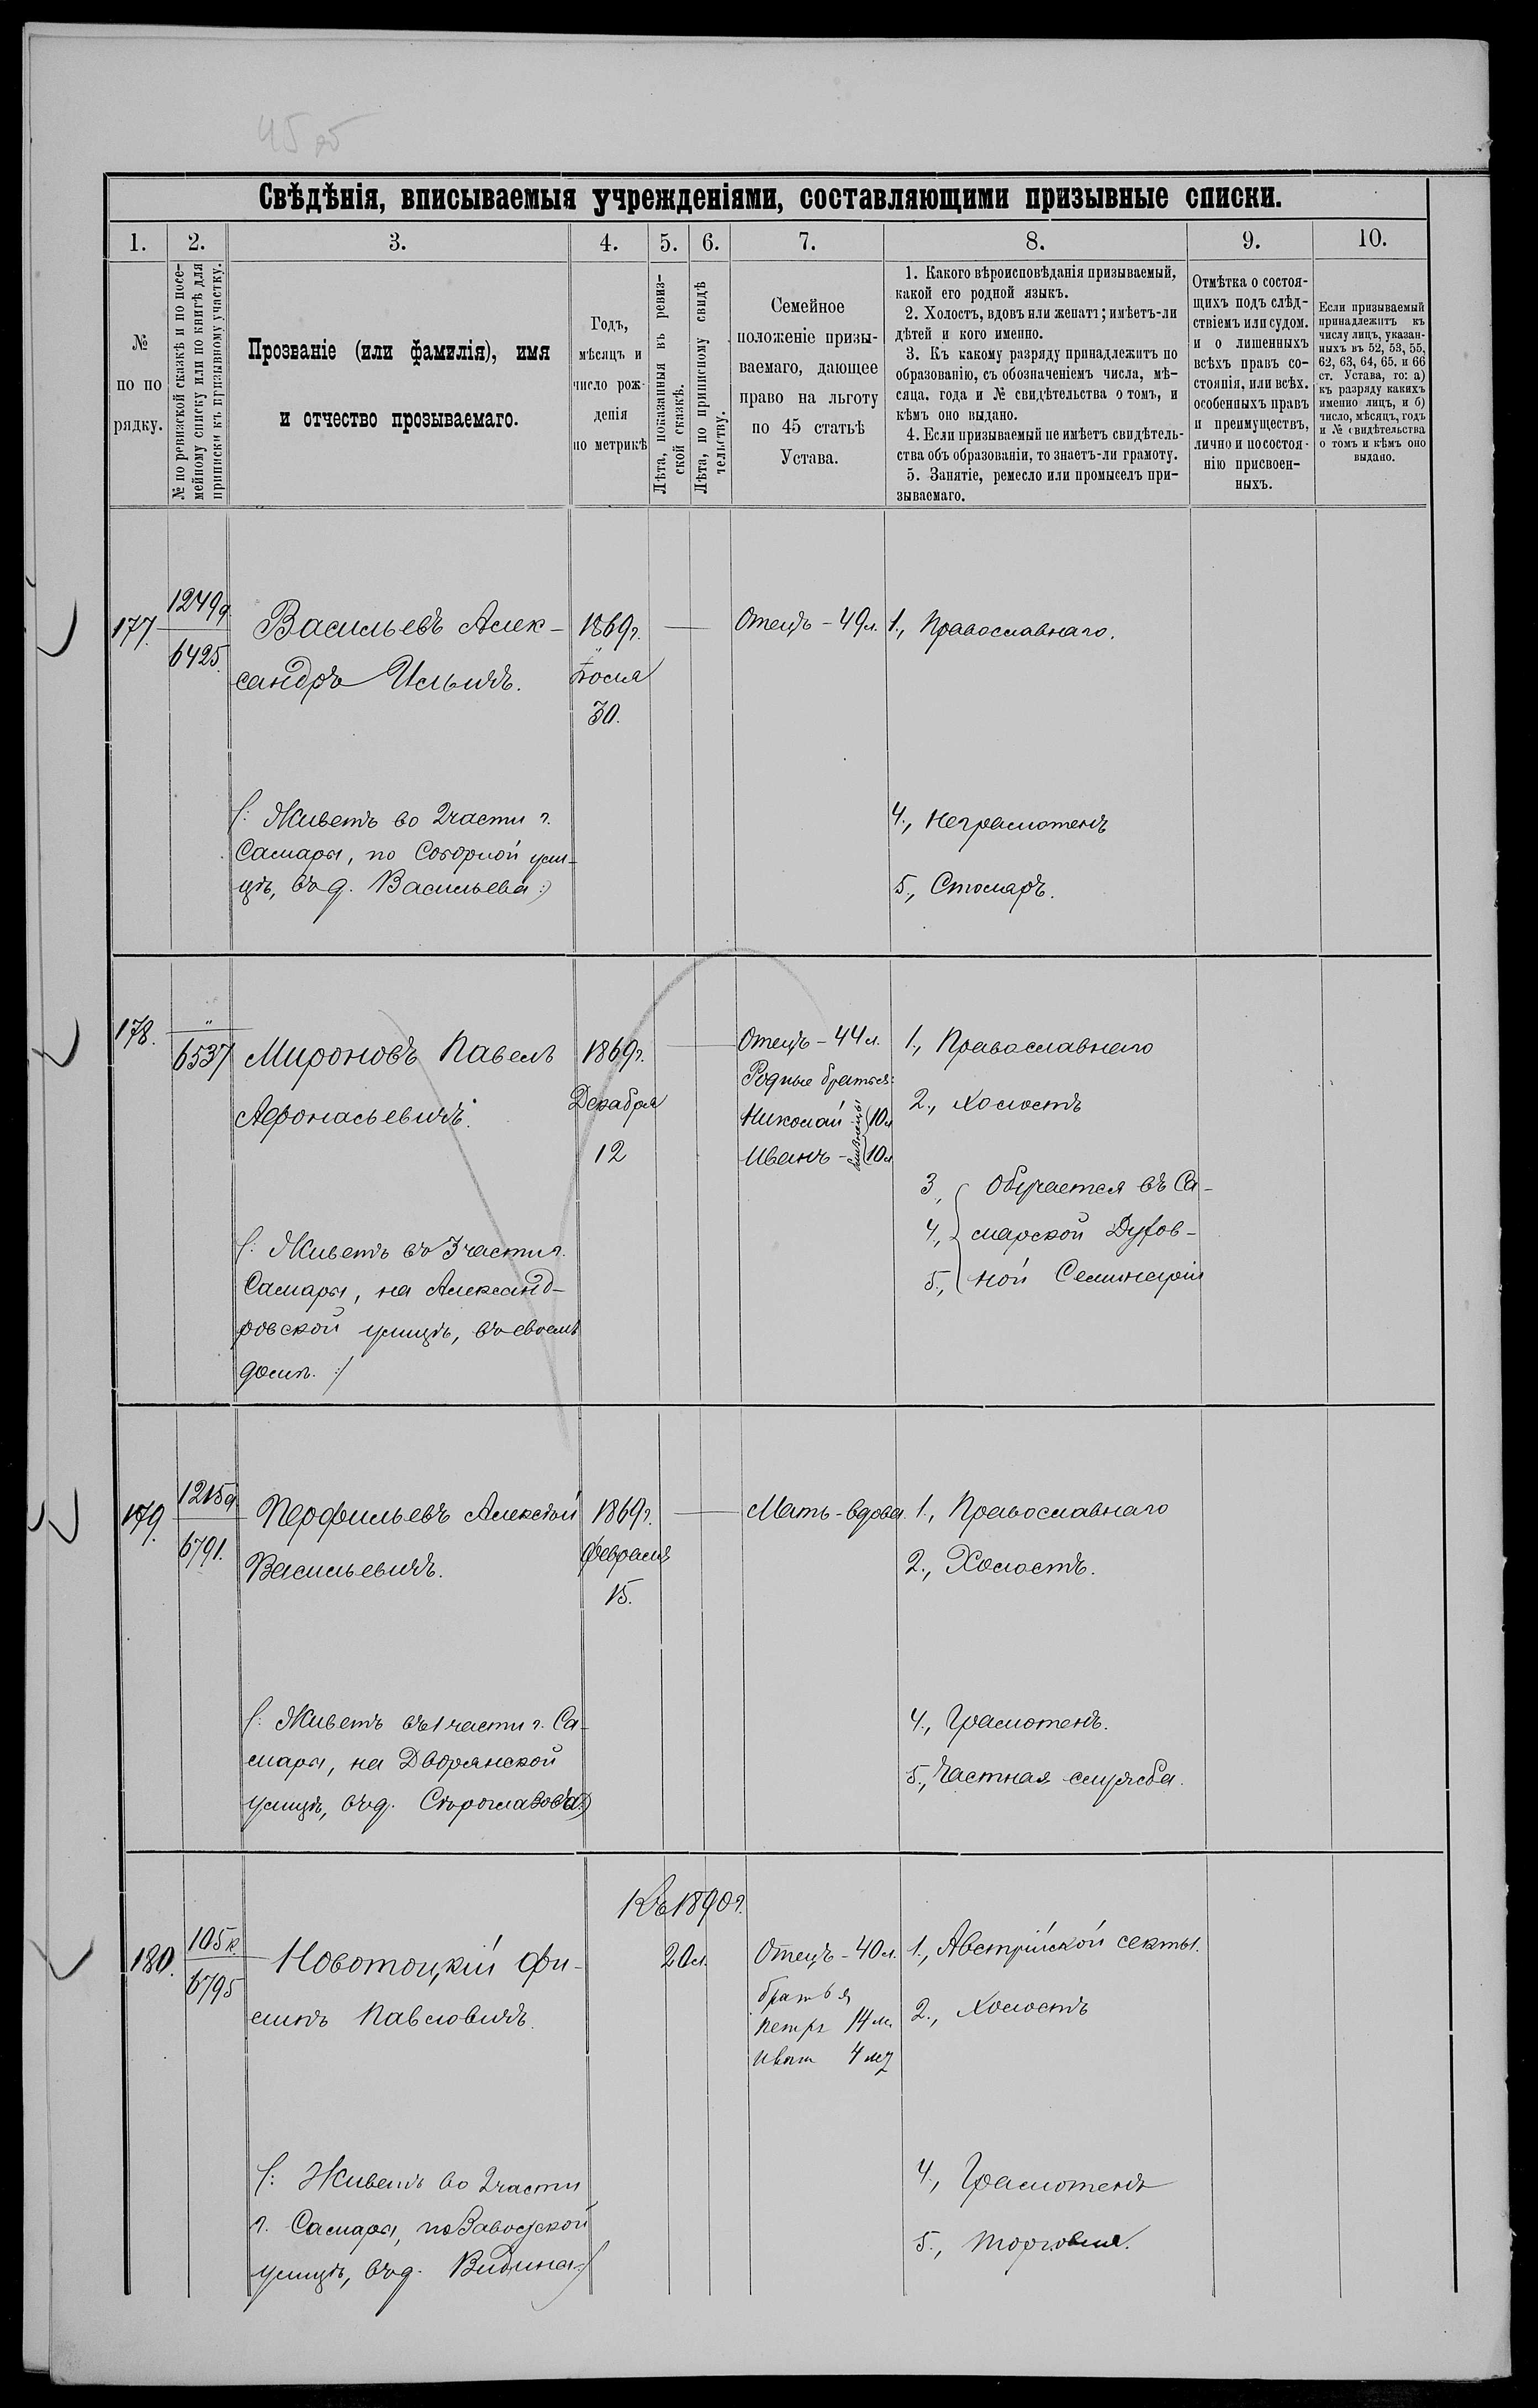 Свѣдѣнія, вписываемыя учрежденіями, составляющими призывные списки.
1. 2. 3. 4. 5. 6. 7. 8. 9. 10.
№
по по
рядку.
№ по ревизкой сказкѣ и по посе-
мейному списку или по книгѣ для
приписки къ призывному участку.
Прозваніе (или фамилія), имя
и отчество прозываемаго.
Годъ,
мѣсяцъ и
число рож-
денія
по метрикѣ
Лѣта, показанныя въ ревиз-
ской сказкѣ.
Лѣта, по приписному свидѣ
тельству.
Семейное
положеніе призы-
ваемаго, дающее
право на льготу
по 45 статьѣ
Устава.
1. Какого вѣроисповѣданія призываемый,
какой его родной языкъ.
2. Холостъ, вдовъ или женатъ; имѣетъ-ли
дѣтей и кого именно.
3. Къ какому разряду принадлежитъ по
образованію, съ обозначеніемъ числа, мѣ-
сяца, года и № свидѣтельства о томъ, и
кѣмъ оно выдано.
4. Если призываемый не имѣетъ свидѣтель-
ства объ образованіи, то знаетъ-ли грамоту.
5. Занятіе, ремесло или промыселъ при-
зываемаго.
Отмѣтка о состоя-
щихъ подъ слѣд-
ствіемъ или судом.
и о лишенныхъ
всѣхъ правъ со-
стоянія, или всѣх.
особенныхъ правъ
и преимуществъ,
лично и по состоя-
нію присвоен-
ныхъ.
Если призываемый
принадлежитъ къ
числу лицъ, указан-
ныхъ въ 52, 53, 55,
62, 63, 64, 65. и 66
ст. Устава, то: а)
къ разряду какихъ
именно лицъ, и б)
число, мѣсяцъ, годъ
и № свидѣтельства
о томъ и кѣмъ оно
выдано.
177.
1249д.
6425.
Васильевъ Алек-
сандръ Ильичъ.
1869г.
Іюля
30.
Отецъ - 49л.
1., Православнаго.
/: Живетъ во 2 части г.
Самары, по Соборной ули-
цѣ, въ д. Васильева :)
4., Неграмотенъ
5., Столяръ.
178.
"
6537
Мироновъ Павелъ
Афонасьевичъ.
1869г.
Декабря
12
Отецъ - 44л.
Родные братья:
Николай - 10л
Иванъ - 10л
близнецы
1., Православнаго
2., Холостъ
3., Обучается въ Са-
4., марской Духов-
5., ной Семинаріи
/: Живетъ въ 3 части г.
Самары, на Александ-
ровской улицѣ, въ своемъ
домѣ. :/
179.
1215д
6791.
Перфильевъ Алексѣй
Васильевичъ.
1869г.
Февраля
15.
Мать - вдова.
1., Православнаго
2., Холостъ.
/: Живетъ въ 1 части г. Са-
мары, на Дворянской
улицѣ, въ д.
4., Грамотенъ.
5., Частная служба.
180.
105к
6795
Новотоцкій Фи-
липъ Павловичъ.
Къ 1890г.
20л.
Отецъ - 40л.
братья
Петръ 14 л.
Иванъ 4 лѣ
1., Австрійской секты.
2., Холостъ
/: Живетъ во 2 части
г. Самары, по Заводской
улицѣ, въ д. Видина :/
4., Грамотенъ
5., Торговля.